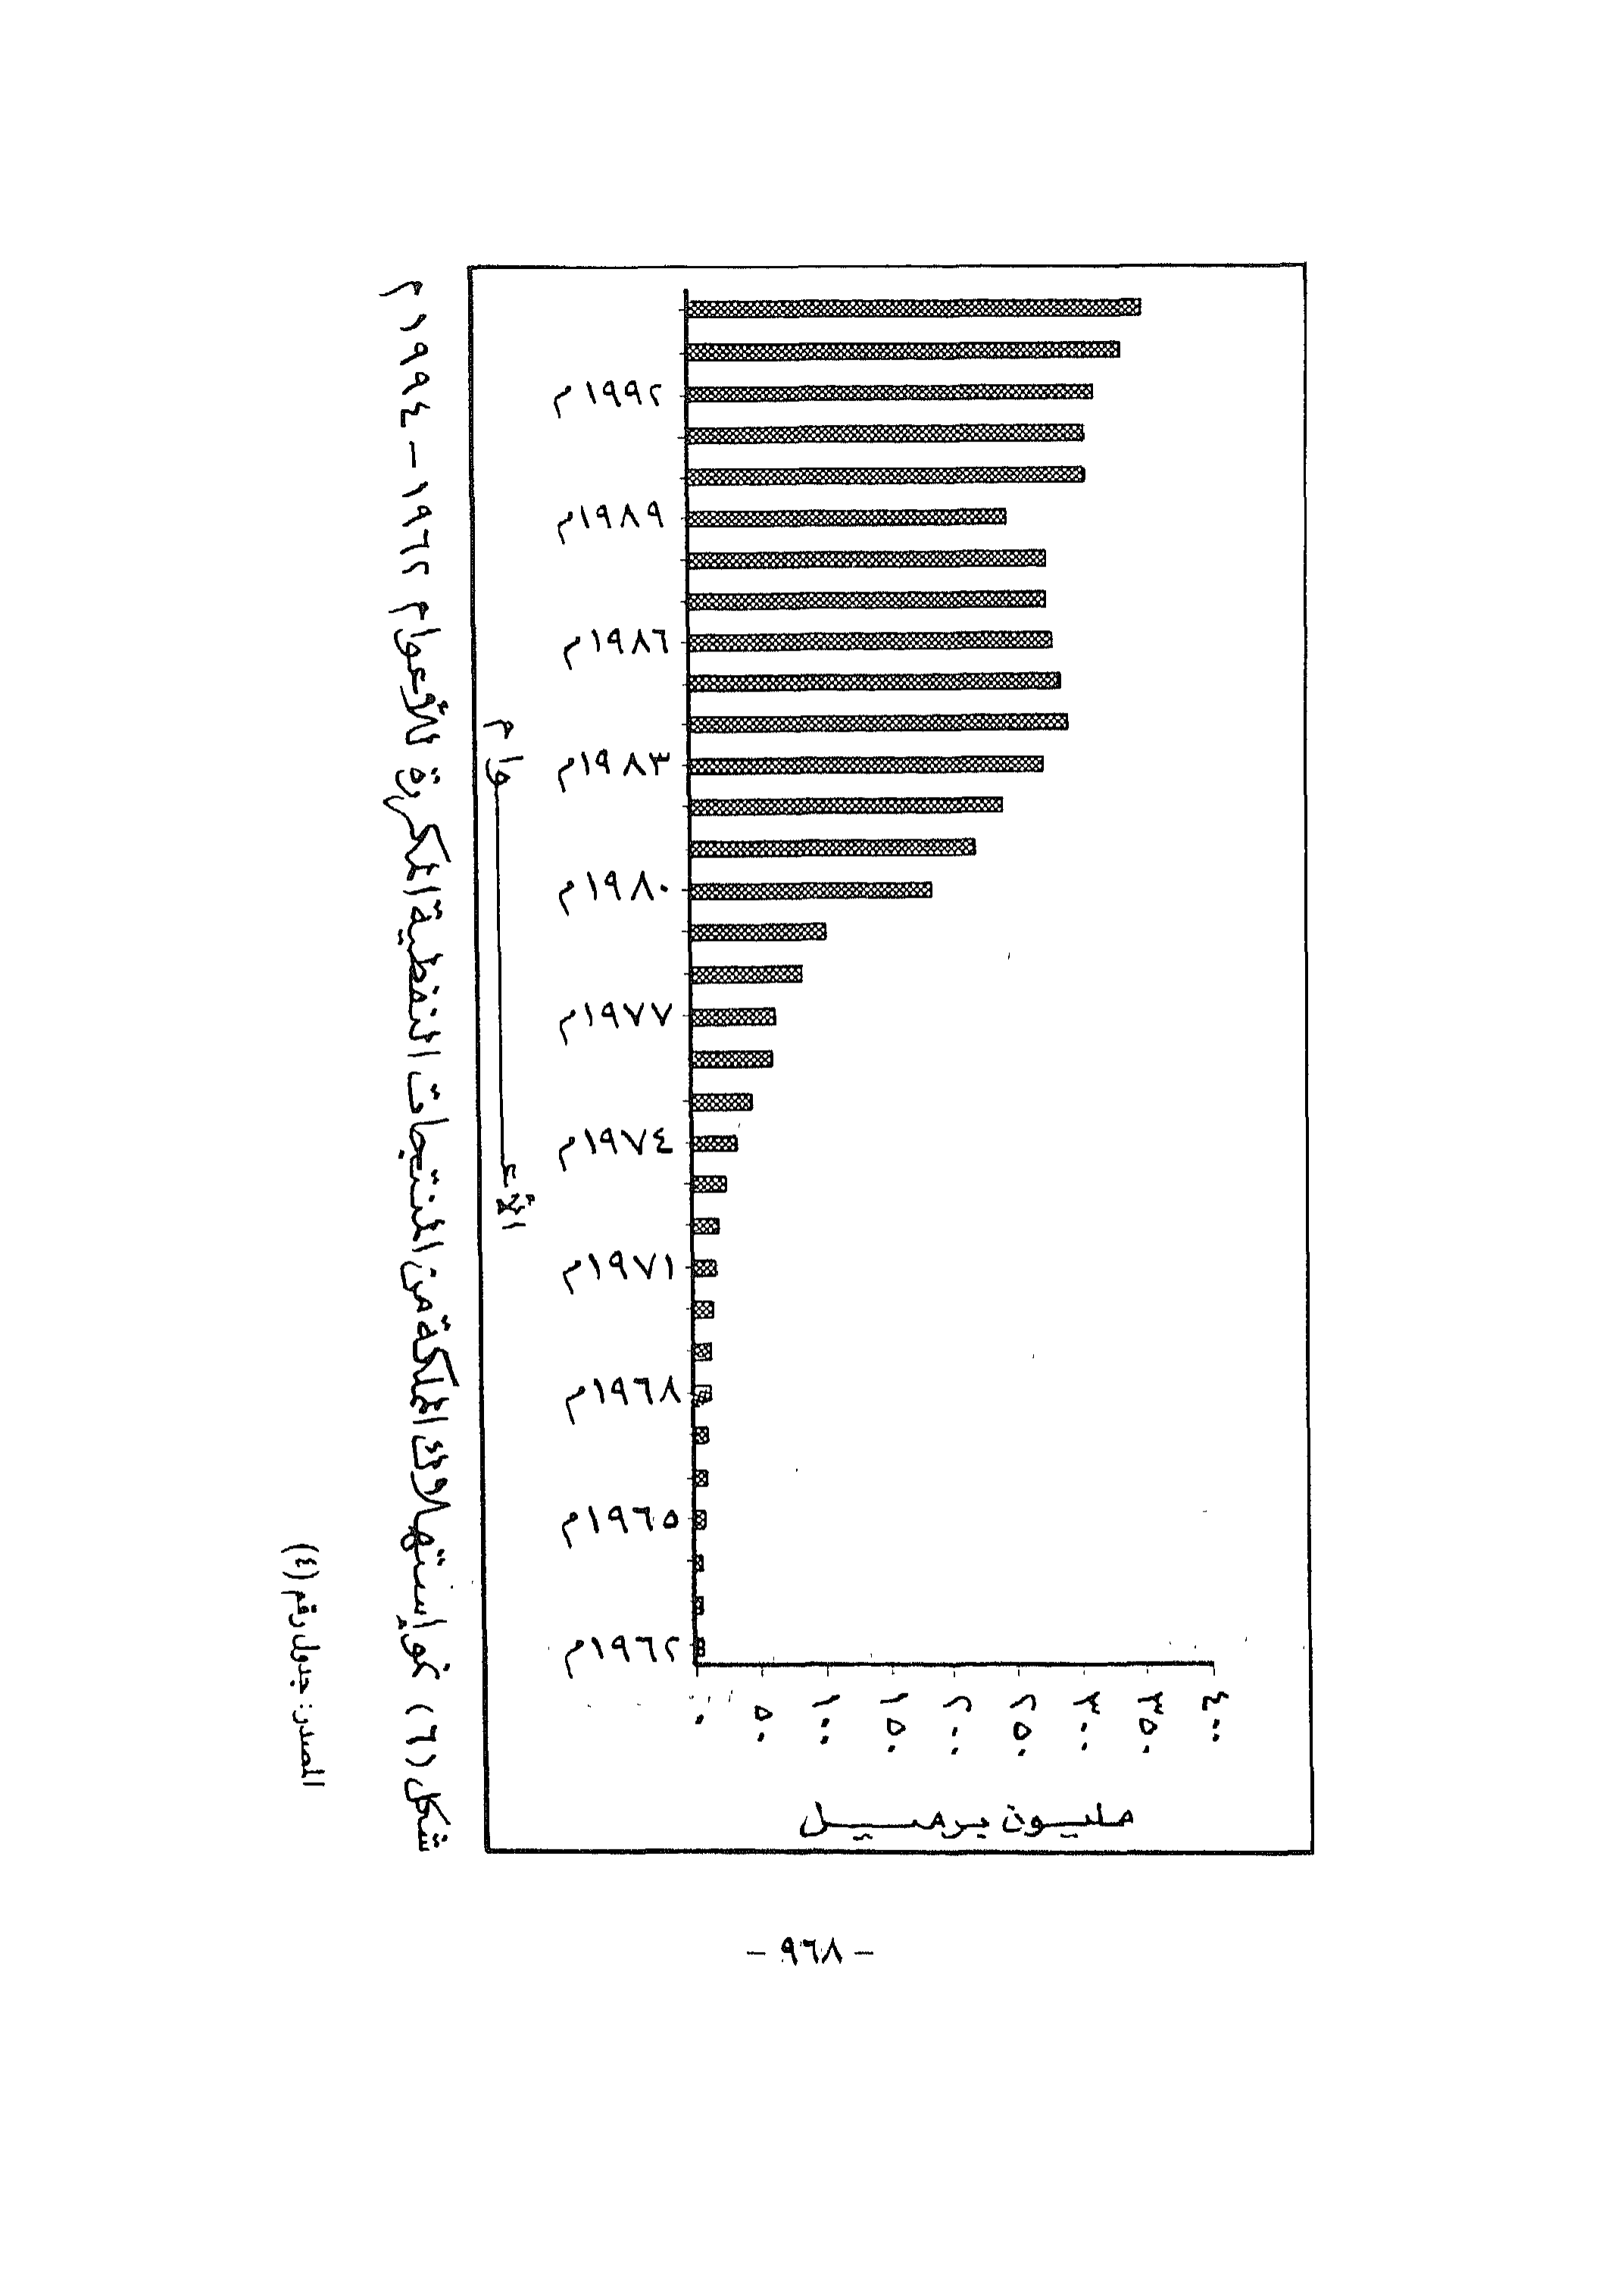 مليون برميل
٤٠٠
٣٥٠
٣٠٠
٢٥٠
٢٠٠
١٥٠
١٠٠
٥٠
٠
١٩٦٢م
١٩٦٥م
١٩٦٨م
١٩٧١م
١٩٧٤م
١٩٧٧م
١٩٨٠م
١٩٨٣م
١٩٨٦م
١٩٨٩م
١٩٩٢م
الأعـــوام
شكل (٦) نمو استهلاك المملكة من المنتجات النفطية المكررة للأعوام ١٩٦٢ - ١٩٩٤م
المصدر: جدول رقم (٤)
- ٩٦٨ -